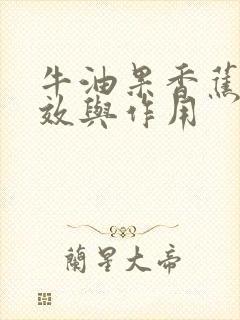 牛油果香蕉
效與作用
蘭星大帝